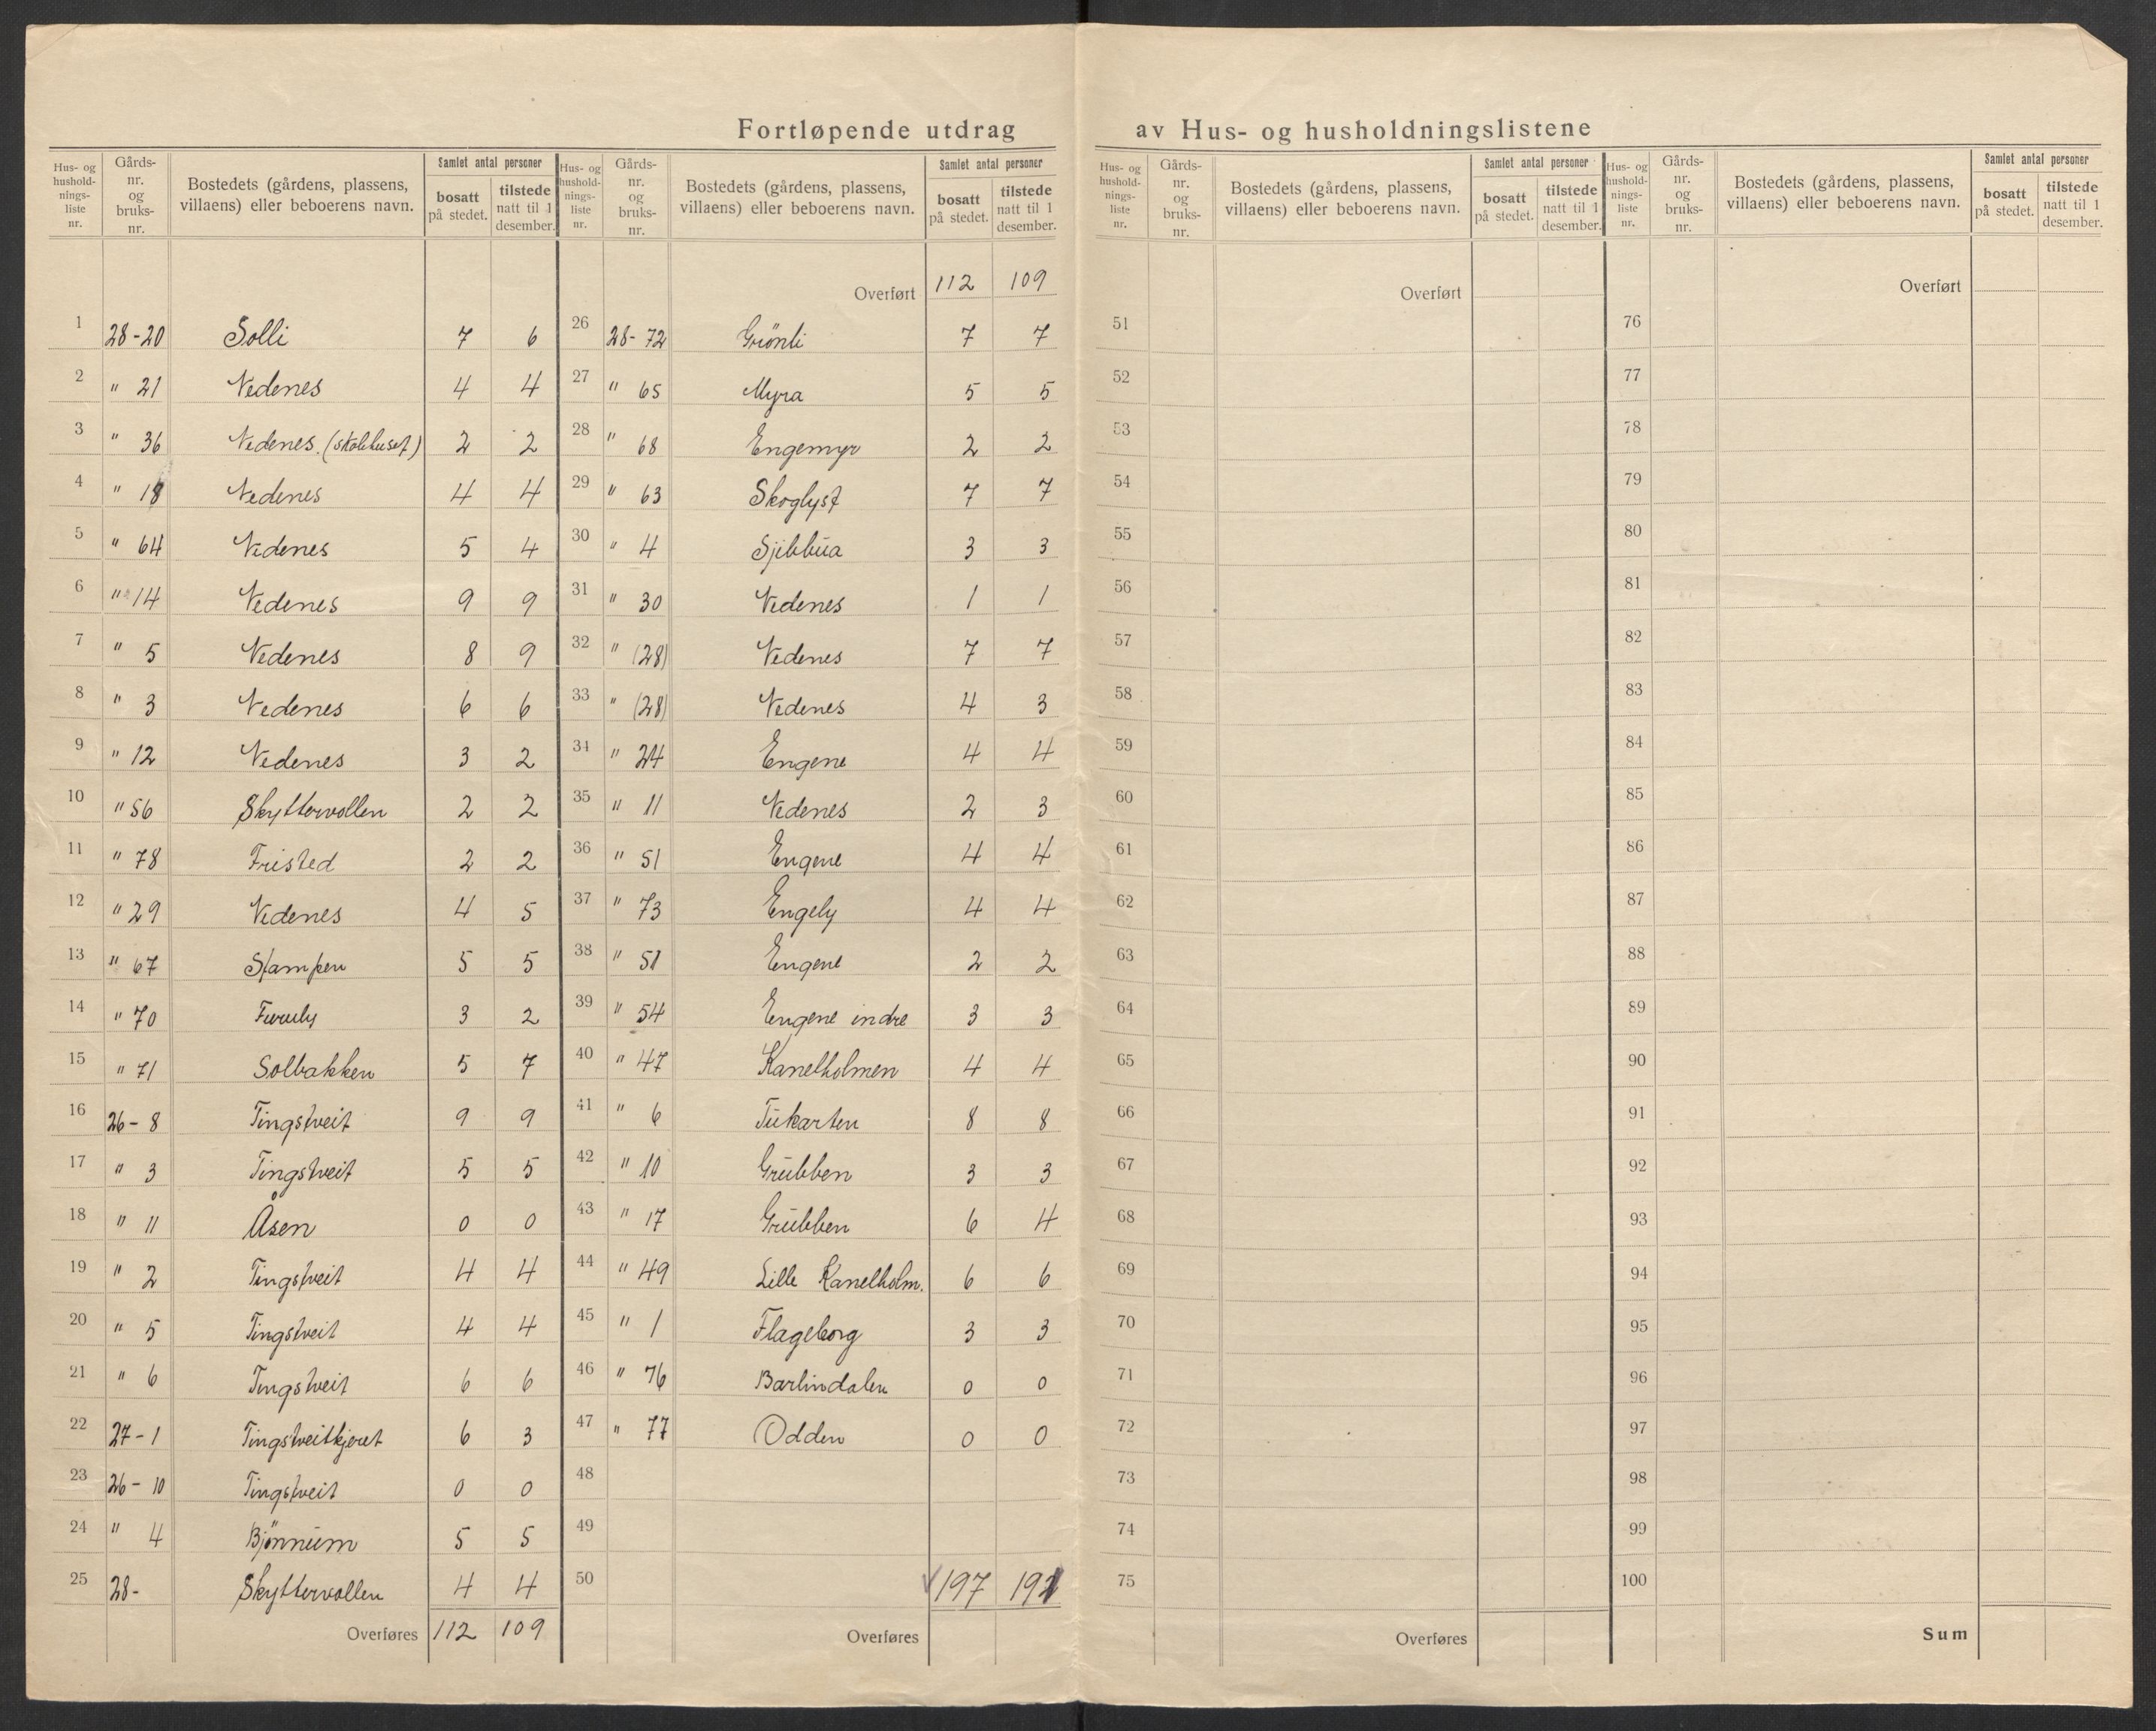 Fortløpende utdrag av Hus- og husholdningslistene
Hus- og husholdnings-liste nr. | Gårds-nr. og bruks-nr. | Bostedets (gårdens, plassens, villaens) eller beboerens navn. | Samlet antal personer | bosatt på stedet. | tilstede natt til 1 desember.
1 28-20 Solli 7 6
2 " 21 Nedenes 4 4
3 " 36 Nedenes. (skolehuset) 2 2
4 " 18 Nedenes 4 4
5 " 64 Nedenes 5 4
6 " 14 Nedenes 9 9
7 " 5 Nedenes 8 9
8 " 3 Nedenes 6 6
9 " 12 Nedenes 3 2
10 " 56 Skyttervollen 2 2
11 " 78 Fristed 2 2
12 " 29 Nedenes 4 5
13 " 67 Stampen 5 5
14 " 70 Furuly 3 2
15 " 71 Solbakken 5 7
16 26-8 Tingstveit 9 9
17 " 3 Tingstveit 5 5
18 " 11 Åsen 0 0
19 " 2 Tingstveit 4 4
20 " 5 Tingstveit 4 4
21 " 6 Tingstveit 6 6
22 27-1 Tingstveitkjeret 6 3
23 26-10 Tingstveit 0 0
24 " 4 Bjønnum 5 5
25 28- Skyttervollen 4 4
Overføres 112 109
Hus- og husholdnings-liste nr. | Gårds-nr. og bruks-nr. | Bostedets (gårdens, plassens, villaens) eller beboerens navn. | Samlet antal personer | bosatt på stedet. | tilstede natt til 1 desember.
Overført 112 109
26 28-72 Grönli 7 7
27 " 65 Myra 5 5
28 " 68 Engemyr 2 2
29 " 63 Skoglyst 7 7
30 " 4 Sjibbua 3 3
31 " 30 Nedenes 1 1
32 " (28) Nedenes 7 7
33 " (28) Nedenes 4 3
34 " 24 Engene 4 4
35 " 11 Nedenes 2 3
36 " 51 Engene 4 4
37 " 73 Engely 4 4
38 " 51 Engene 2 2
39 " 54 Engene indre 3 3
40 " 47 Kanelholmen 4 4
41 " 6 Tukarten 8 8
42 " 10 Grubben 3 3
43 " 17 Grubben 6 4
44 " 49 Lille Kanelholm. 6 6
45 " 1 Flageborg 3 3
46 " 76 Barlindalen 0 0
47 " 77 Odden 0 0
48
49
50 197 192
Overføres
Hus- og husholdnings-liste nr. | Gårds-nr. og bruks-nr. | Bostedets (gårdens, plassens, villaens) eller beboerens navn. | Samlet antal personer | bosatt på stedet. | tilstede natt til 1 desember.
Overført
51
52
53
54
55
56
57
58
59
60
61
62
63
64
65
66
67
68
69
70
71
72
73
74
75
Overføres
Hus- og husholdnings-liste nr. | Gårds-nr. og bruks-nr. | Bostedets (gårdens, plassens, villaens) eller beboerens navn. | Samlet antal personer | bosatt på stedet. | tilstede natt til 1 desember.
Overført
76
77
78
79
80
81
82
83
84
85
86
87
88
89
90
91
92
93
94
95
96
97
98
99
100
Sum